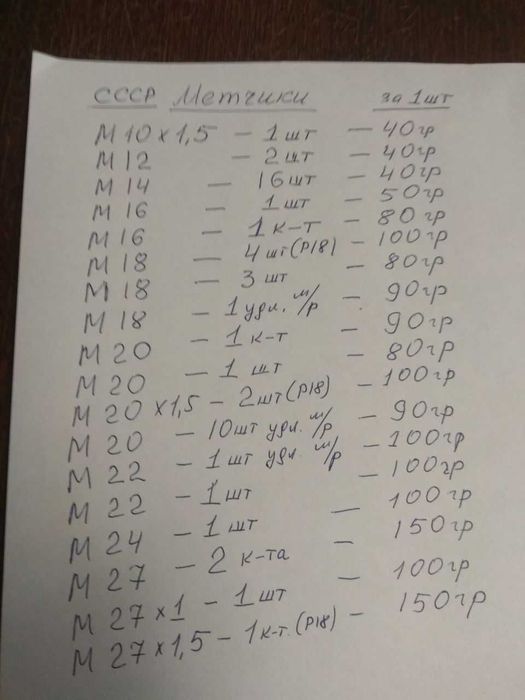 СССР Метчики за 1шт
М 10 x 1,5 - 1 шт - 40гр
М 12 - 2 шт - 40гр
М 14 - 16 шт - 40гр
М 16 - 1 шт - 50гр
М 16 - 1 к-т - 80 гр
М 18 - 4 шт (Р18) - 100гр
М 18 - 3 шт - 80гр
М 18 - 1 удл. м/р - 90гр
М 20 - 1 к-т - 90гр
М 20 - 1 шт - 80гр
М 20 x 1,5 - 2шт (Р18) - 100гр
М 20 - 10шт удл. м/р - 90гр
М 22 - 1 шт удл. м/р - 100гр
М 22 - 1шт - 100гр
М 24 - 1 шт - 100гр
М 27 - 2 к-та - 150гр
М 27 x 1 - 1 шт - 100гр
М 27 x 1,5 - 1 к-т. (Р18) - 150гр